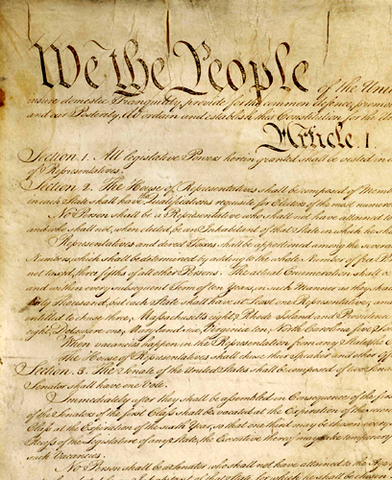 We the People of the Unit
insure domestic Tranquility, provide for the common defence, promo
and our Posterity, do ordain and establish this Constitution for the Un
Article. I.
Section. 1. All legislative Powers herein granted shall be vested in
of Representatives.
Section. 2. The House of Representatives shall be composed of Mem
in each State shall have Qualifications requisite for Electors of the most numero
No Person shall be a Representative who shall not have attained
and who shall not, when elected, be an Inhabitant of that State in which he sh
Representatives and direct Taxes shall be apportioned among the sever
Numbers, which shall be determined by adding to the whole Number of free P
not taxed, three fifths of all other Persons. The actual Enumeration shall
and within every subsequent Term of ten Years, in such Manner as they sha
thirty Thousand, but each State shall have at Least one Representative; an
entitled to chuse three, Massachusetts eight, Rhode Island and Providen
eight, Delaware one, Maryland six, Virginia ten, North Carolina five, S
When vacancies happen in the Representation from any State, the E
The House of Representatives shall chuse their Speaker and other O
Section. 3. The Senate of the United States shall be composed of two Sena
Senator shall have one Vote.
Immediately after they shall be assembled in Consequence of the fir
of the Senators of the first Class shall be vacated at the Expiration of the seco
Class at the Expiration of the sixth Year, so that one third may be chosen every s
Recess of the Legislature of any State, the Executive thereof may make tempora
such Vacancies.
No Person shall be a Senator who shall not have attained to the Age